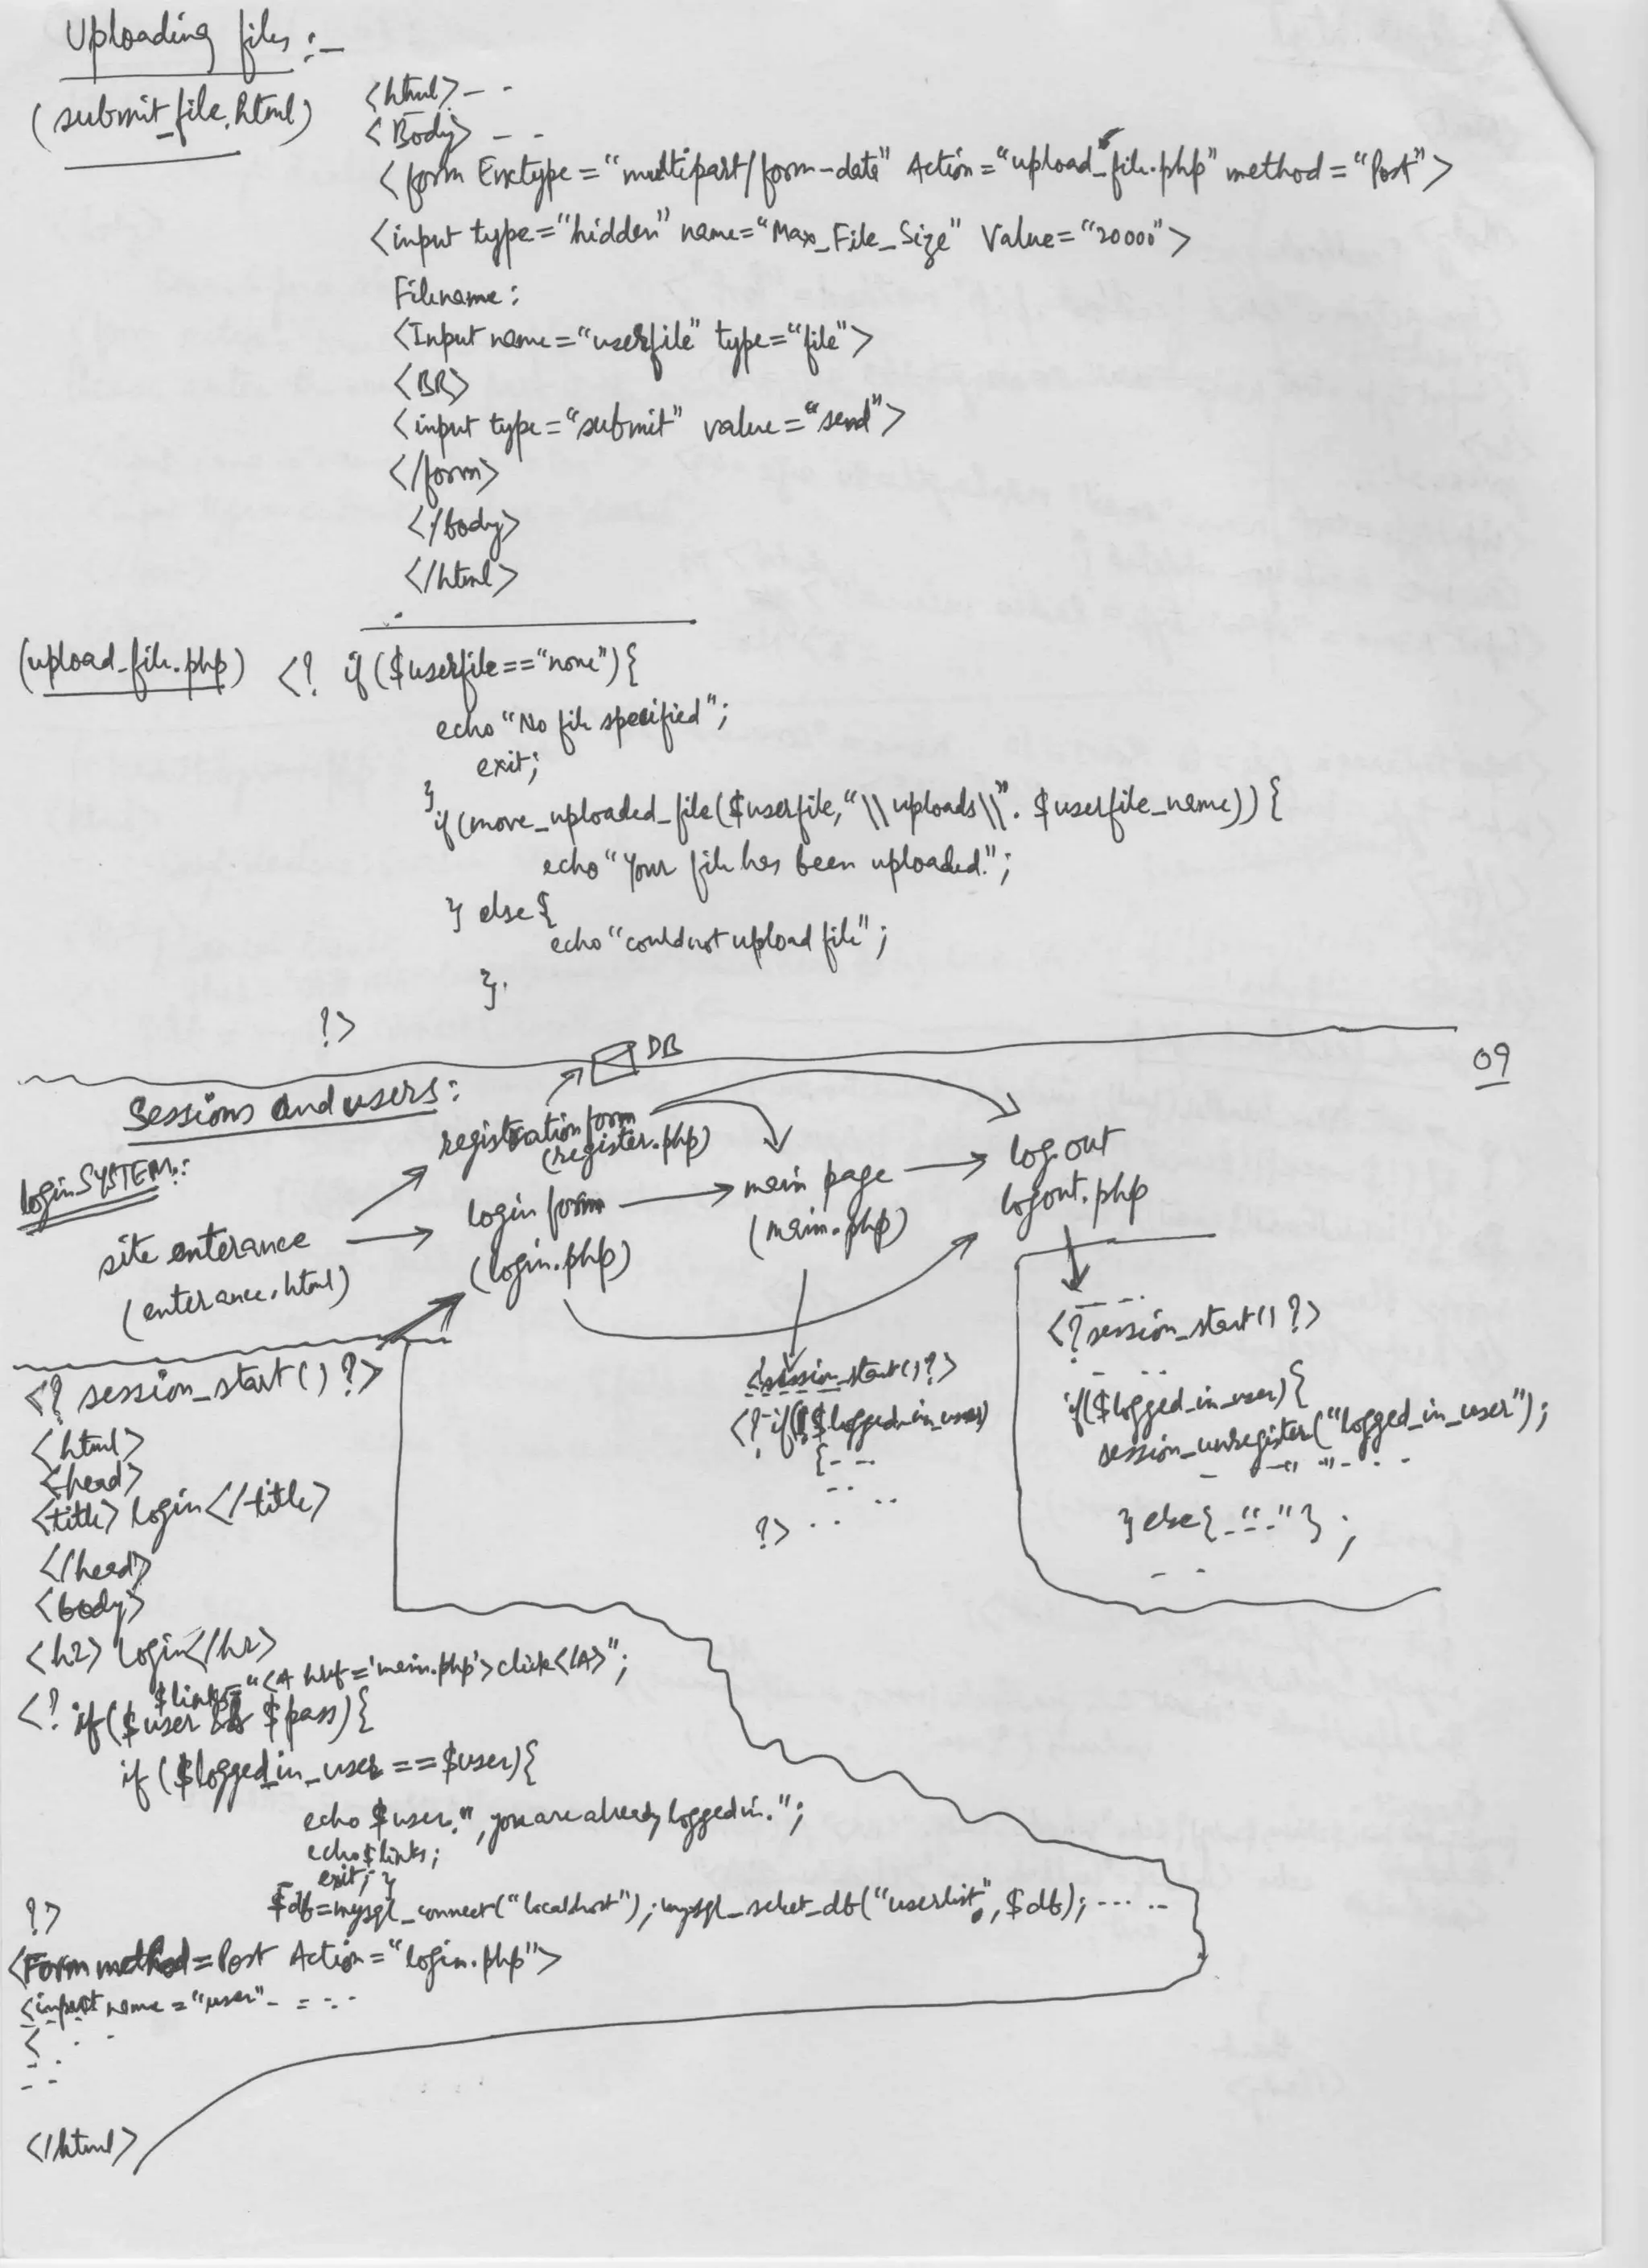 Uploading files :-
(submit_file.html)
<html> - -
<Body> - -
<form Enctype = "multipart/form-date" Action = "upload_file.php" method = "Post">
<input type = "hidden" name = "Max_File_Size" Value = "20000">
Filename :
<Input name = "userfile" type = "file">
<BR>
<input type = "submit" value = "send">
</form>
</body>
</html>
(upload_file.php) <? if ($userfile == "none") {
echo "No file specified";
exit;
}
if (move_uploaded_file($userfile, "\\uploads\\". $userfile_name)) {
echo "Your file has been uploaded.";
} else {
echo "could not upload file";
}.
?>
DB
09
Sessions and users :
login SYSTEM :
registration form
(register.php)
log out
logout.php
login form
(login.php)
main page
(main.php)
site enterance
(enterance.html)
<? session_start() ?>
<html>
<head>
<title> login </title>
</head>
<body>
<h2> login </h2>
$links = "<A href = 'main.php'> click </A>";
<? if ($user && $pass) {
if ($logged_in_user == $user) {
echo $user.", you are already logged in.";
echo $links;
exit; }
$db = mysql_connect("localhost"); mysql_select_db("userlist", $db); ---- --
?>
<Form method = Post Action = "login.php">
<input name = "user" - = - -
<
</html>
<session_start() ?>
<? if (!$logged_in_user)
{ - -
?> . .
<? session_start() ?>
if ($logged_in_user) {
session_unregister("logged_in_user");
} else { - "-" } ;